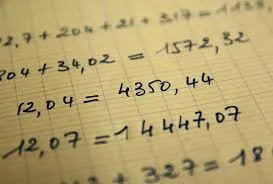 2,7 + 204 + 21 + 317 = 1138,
304 + 34,02 = 1572,32
12,04 = 4350,44
12,07 = 14447,07
2 + 327 = 18